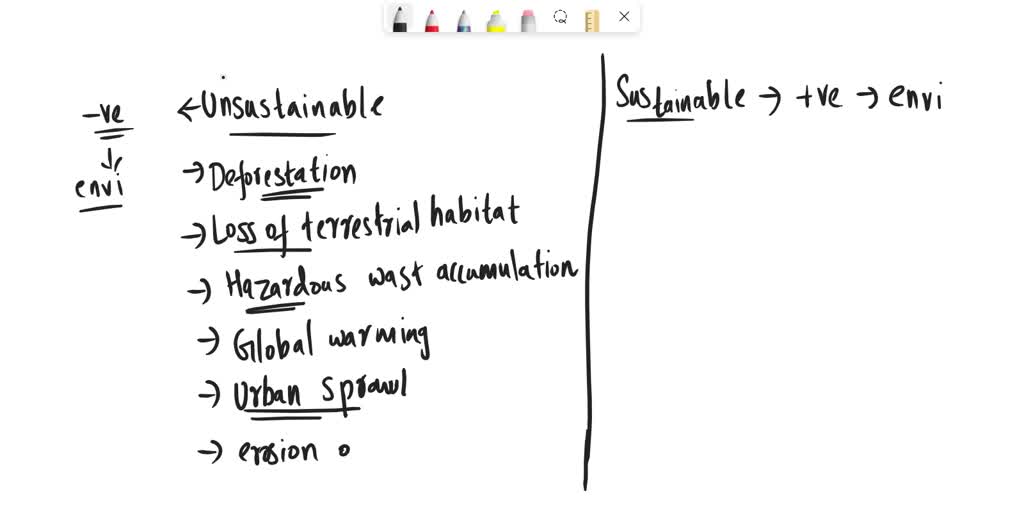 -ve ← Unsustainable
↓
envi
→ Deforestation
→ Loss of terrestrial habitat
→ Hazardous wast accumulation
→ Global warming
→ Urban sprawl
→ erosion o
Sustainable → +ve → envi